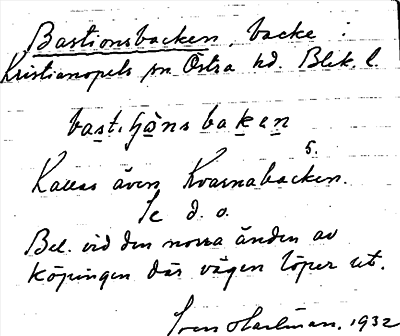 Bastionsbacken, backe i
Kristianopels sn Östra hd. Blek. l.
bast.jönsbaken
Kallas även Kvarnabacken.
5.
Se d. o.
Bel. vid den norra änden av
köpingen där vägen löper ut.
Sven Hallman. 1932